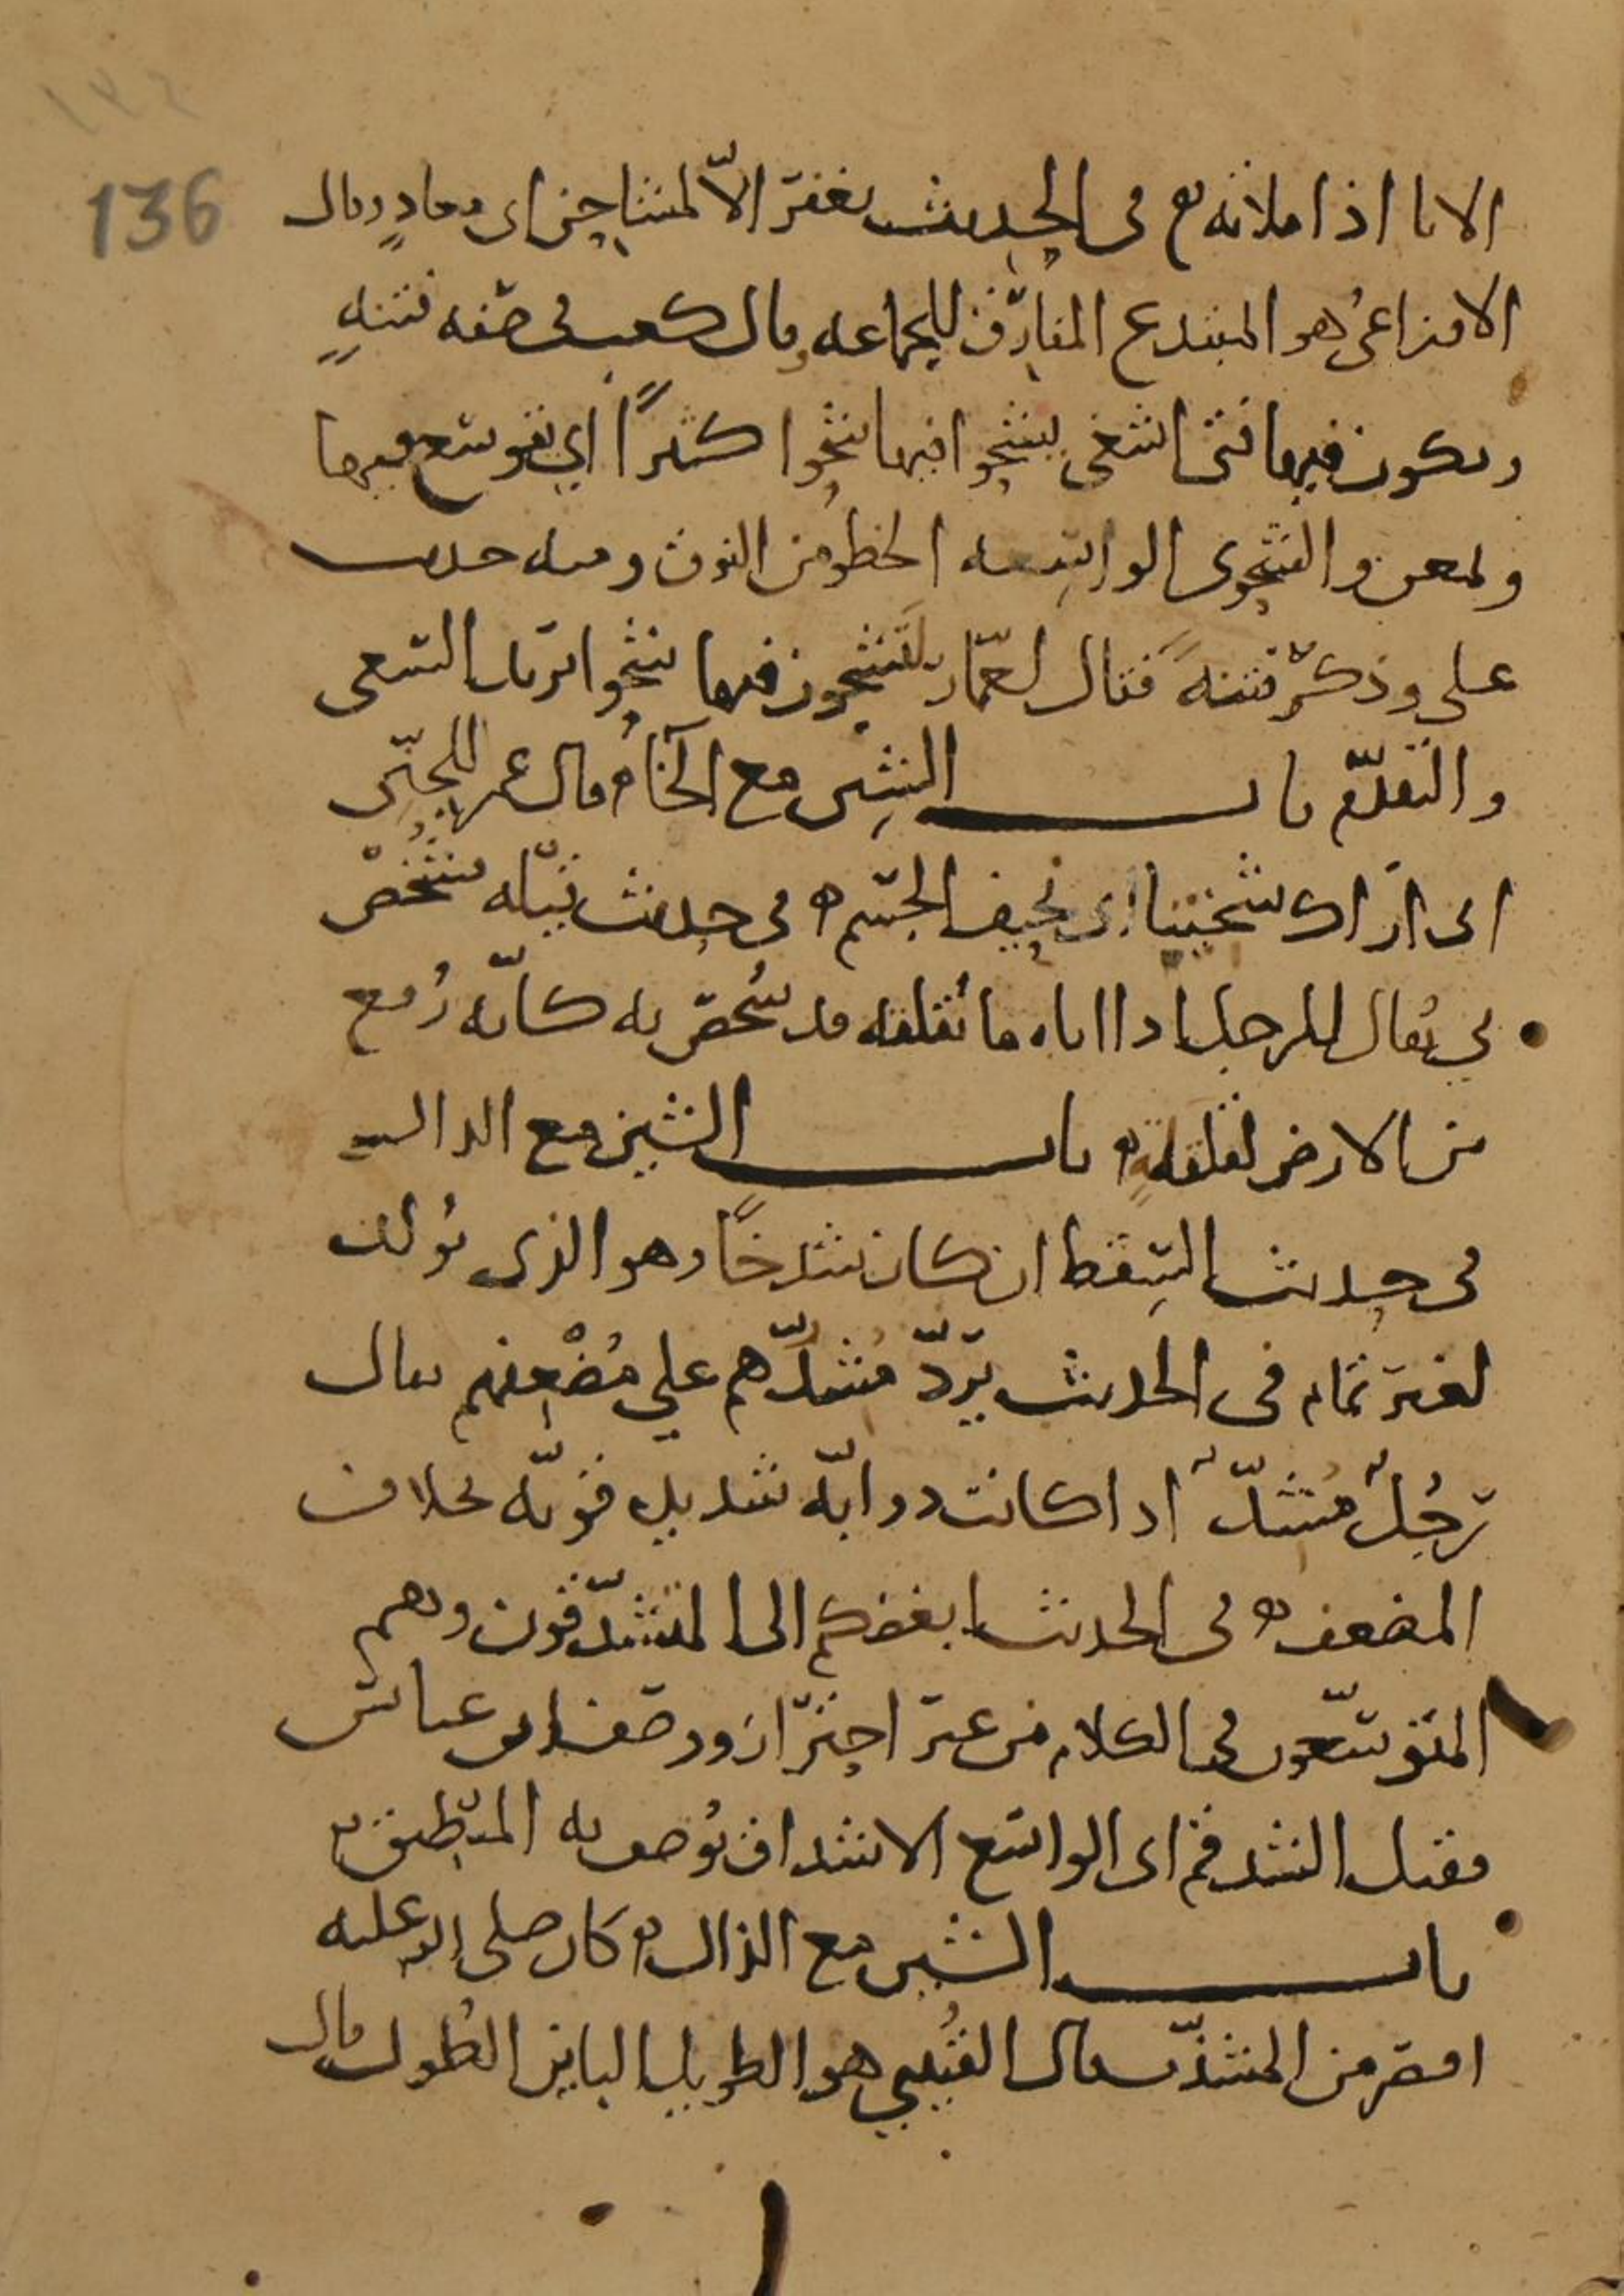 ١٣٦
136
الانا اذا ملاته ه في الحديث يغفر الا لمشاحن اي معادٍ وقال
الاوزاعيُ هو المبتدع المفارق للجماعه وقال كعب في صفه فتنهٍ
ويكون فيها فتى يشحوا فيها شحوا كثيرًا اي يتوسع فيها
ويمعن والشحوى الواسعه الخطو من النوق ومنه حديث
علي وذكر فتنهً فقال لعمّار لتشحون فيها شحوا يريد السعى
والتقدّم باب الشين مع الخاء ه قال عمر للجنّى
اني اراك شخيتا اي نحيف الجسم ه في حديث قيله فشُخِصَ
بي يُقال للرجل اذا اتاه ما يُقلقه قد شُخص به كانّه رُفع
من الارض لقلقهِ ه باب الشين مع الدال
في حديث السِقط ان كان شدخًا وهو الذي يُولد
لغير تمام في الحديث يردّ مُشدّهم علي مُضْعفهم يقال
رجُلٌ مُشدّ اذا كانت دوابّه شديده قويّه بخلاف
المضعف ه في الحديث ابغضكم الى المتشدّقون وهم
المتوسّعون في الكلام من غير احتراز ووصف ابن عباس
فقيل الشدقم اي الواسع الاشداق يُوصف به المنطيق ه
باب الشين مع الذال ه كان صلى الله عليه
اقصر من المشذّب قال القُتيبي هو الطويل الباين الطُول وقال